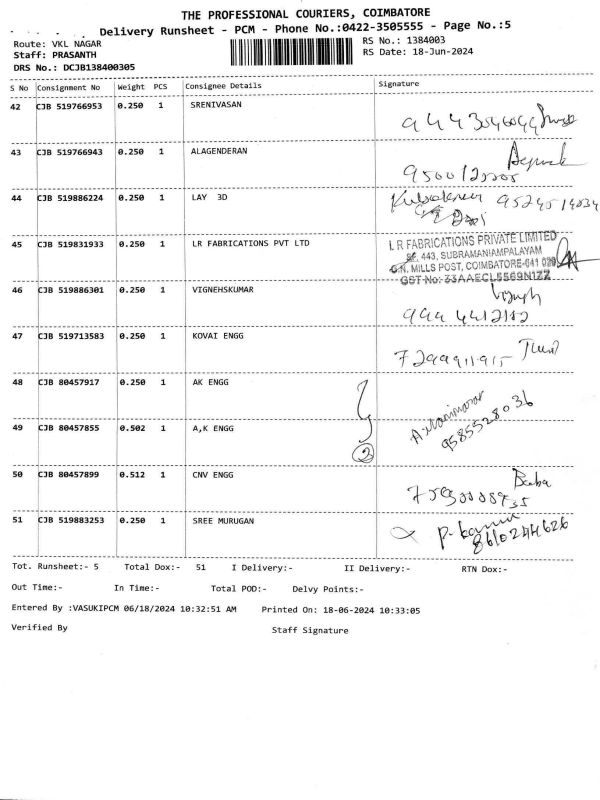 THE PROFESSIONAL COURIERS, COIMBATORE
Delivery Runsheet - PCM - Phone No.:0422-3505555 - Page No.:5
Route: VKL NAGAR RS No.: 1384003
Staff: PRASANTH RS Date: 18-Jun-2024
DRS No.: DCJB138400305
S No Consignment No Weight PCS Consignee Details Signature
42 CJB 519766953 0.250 1 SRENIVASAN
43 CJB 519766943 0.250 1 ALAGENDERAN
44 CJB 519886224 0.250 1 LAY 3D
45 CJB 519831933 0.250 1 LR FABRICATIONS PVT LTD
L R FABRICATIONS PRIVATE LIMITED
SF. 443, SUBRAMANIAMPALAYAM
G.N. MILLS POST, COIMBATORE-641 029
GST No: 33AAECL5569N1ZZ
46 CJB 519886301 0.250 1 VIGNEHSKUMAR
47 CJB 519713583 0.250 1 KOVAI ENGG
48 CJB 80457917 0.250 1 AK ENGG
9585528036
49 CJB 80457855 0.502 1 A,K ENGG
2
50 CJB 80457899 0.512 1 CNV ENGG Baba
51 CJB 519883253 0.250 1 SREE MURUGAN
8610244626
Tot. Runsheet:- 5 Total Dox:- 51 I Delivery:- II Delivery:- RTN Dox:-
Out Time:- In Time:- Total POD:- Delvy Points:-
Entered By :VASUKIPCM 06/18/2024 10:32:51 AM Printed On: 18-06-2024 10:33:05
Verified By Staff Signature